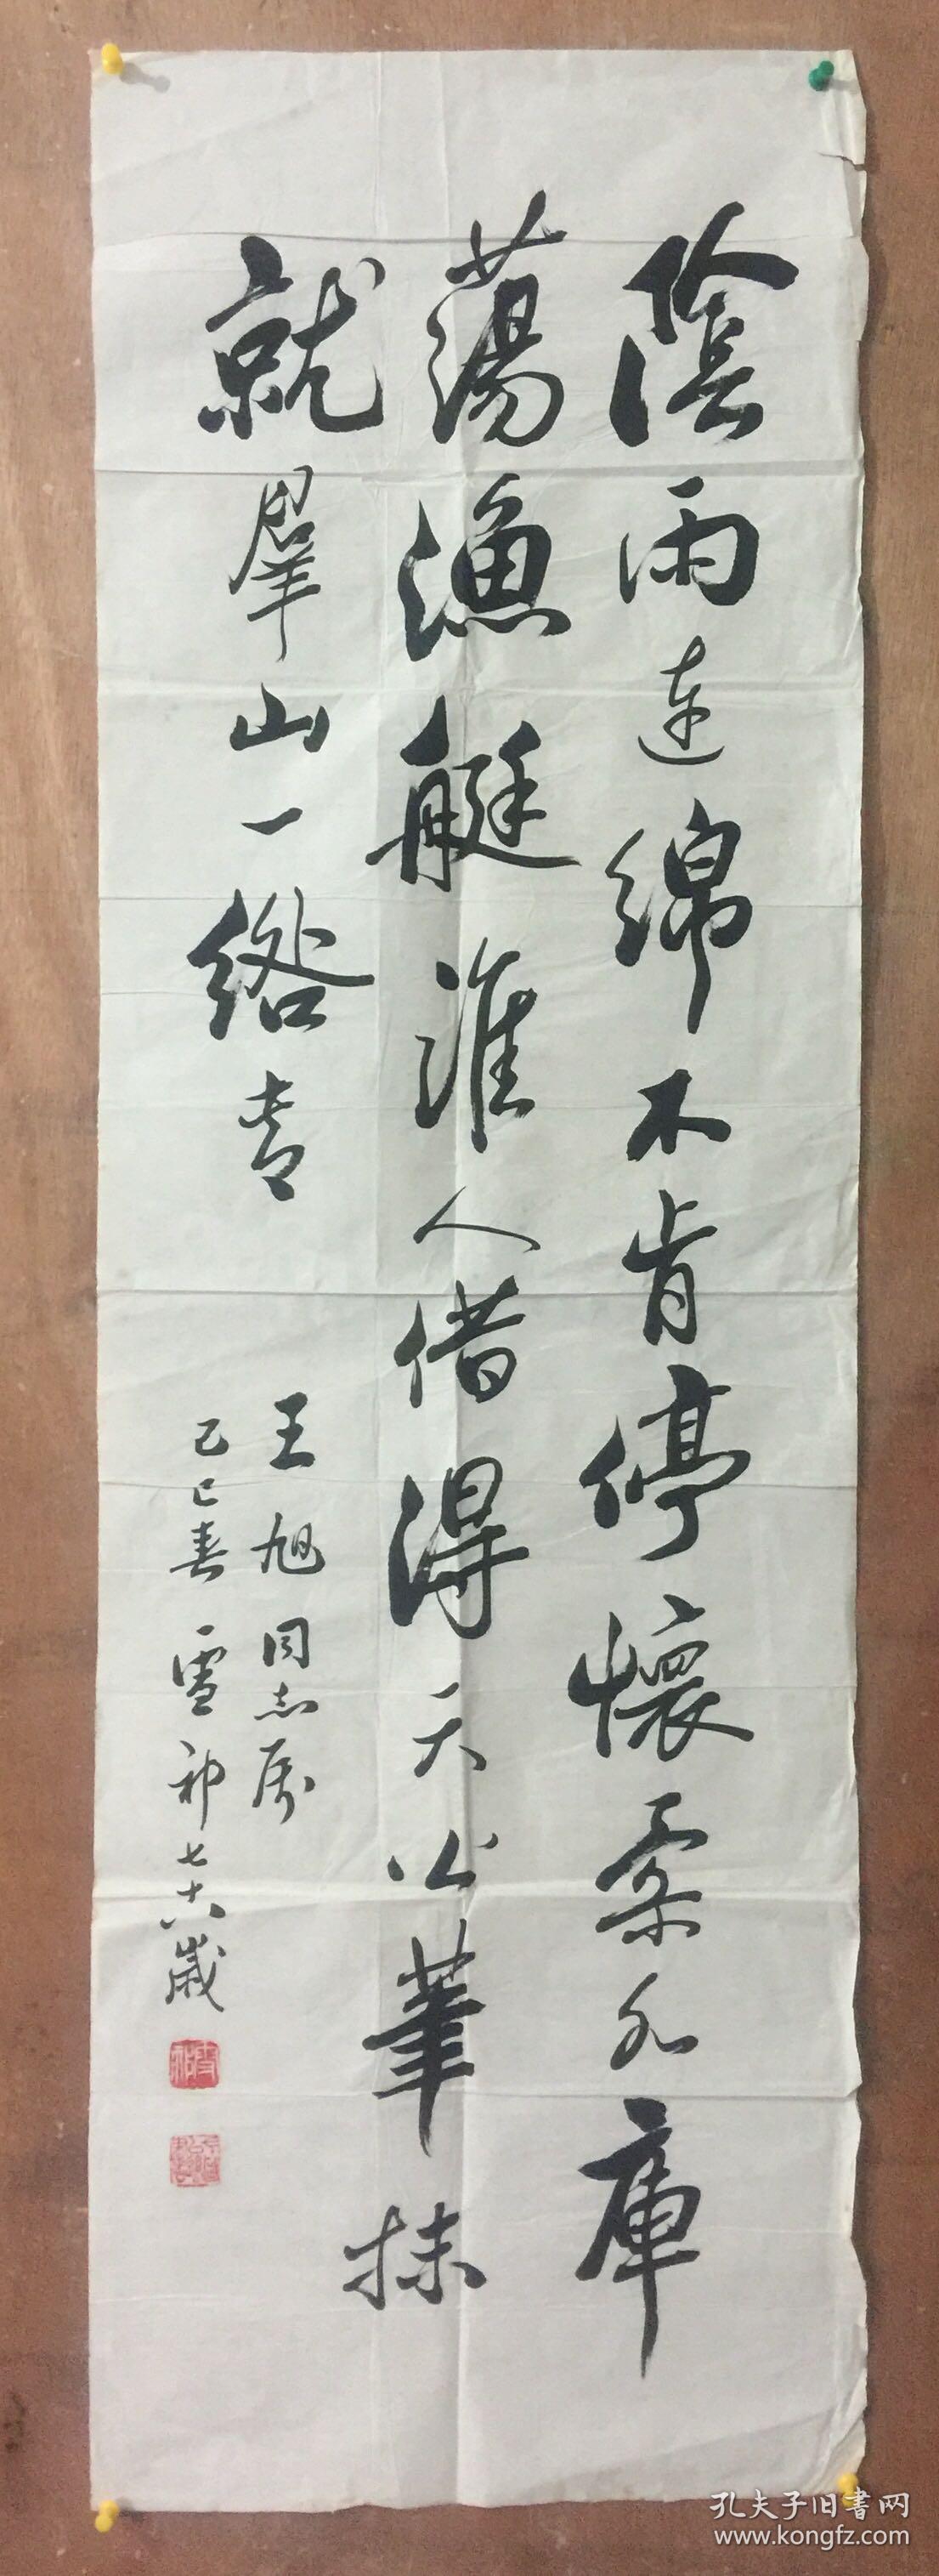 陰雨連綿不肯停懷柔水庫
蕩漁艇誰人借得天公筆抹
就羣山一綹青
王旭同志屬
己巳春雪祁七十六歲
孔夫子旧書网
www.kongfz.com